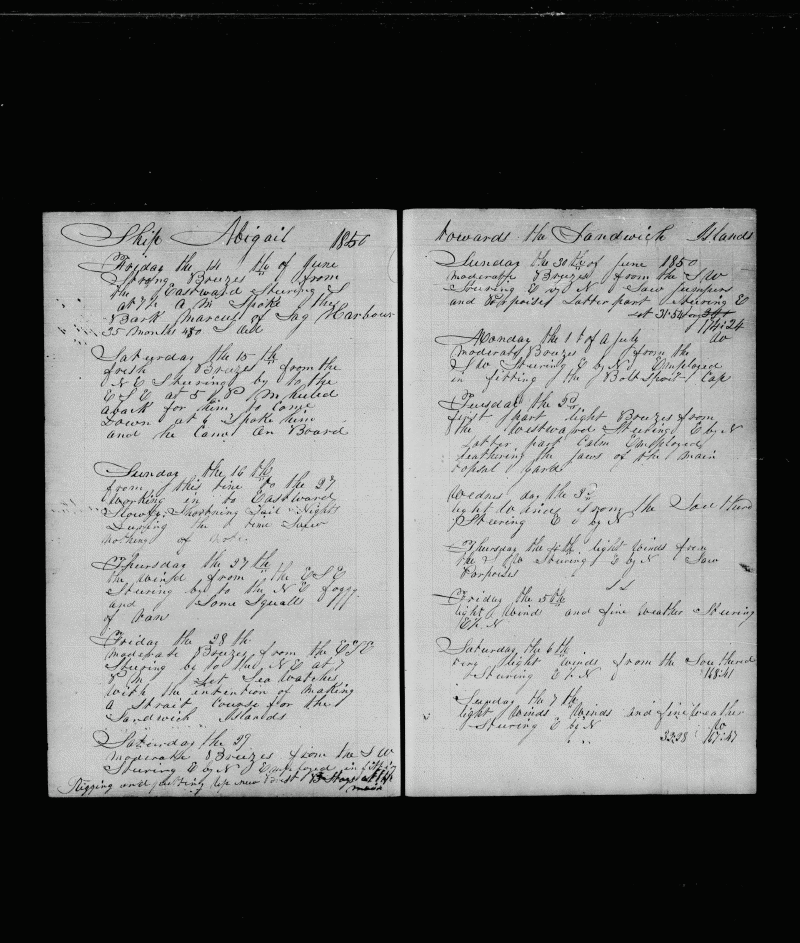 Ship Abigail 1850
Friday the 14 th of June
Strong Breezes from
the Eastward Steering S
at 7 A M Spoke the
Bark Marcus of Sag Harbour
25 months 480 S
Saturday the 15 th
fresh Breezes from the
N E Steering by to the
E S E at 5 P M hauled
aback for him to Come
Down at 6 Spoke him
and he Came On Board
Sunday the 16 th
from this time to the 27
working in to Eastward
Slowly Shortning Sail Nights
During the time Saw
nothing of
Thursday the 27 th
the wind from the E S E
Steering by to the N E foggy
and Some Squalls
of Rain
Friday the 28 th
moderate Breezes from the E S E
Steering by to the N E at 7
P M Set Sea Watches
with the intention of making
a Strait Course for the
Sandwich Islands
Saturday the 29
moderate Breezes from the S W
Steering E by N Employed in fitting
Rigging and new
main
towards the Sandwich Islands
Sunday the 30 th of June 1850
moderate Breezes from the S W
Steering E by N Saw jumpers
and Latter part Steering E
Lat 31:54 Long
174:24
Monday the 1 t of a July do
moderate Breezes from the
S W Steering E by N Employed
in fitting the Bolt Sprit Cap
Tuesday the 2d
first part light Breezes from
the Westward Steering E by N
Latter part Calm Employed
leathering the jaws of the main
topsal yard
Wednes day the 3d
light winds from the Southard
Steering E by N
Thursday the 4th light Winds from
the S W Steering E by N Saw
Porpoises
Friday the 5 th
light Wind and fine Weather Steering
E b N
Saturday the 6 th
very light Winds from the Southard
Steering E b N 168:41
Sunday the 7 th
light Winds and fine Weather
Steering E by N do
32:28 167:47